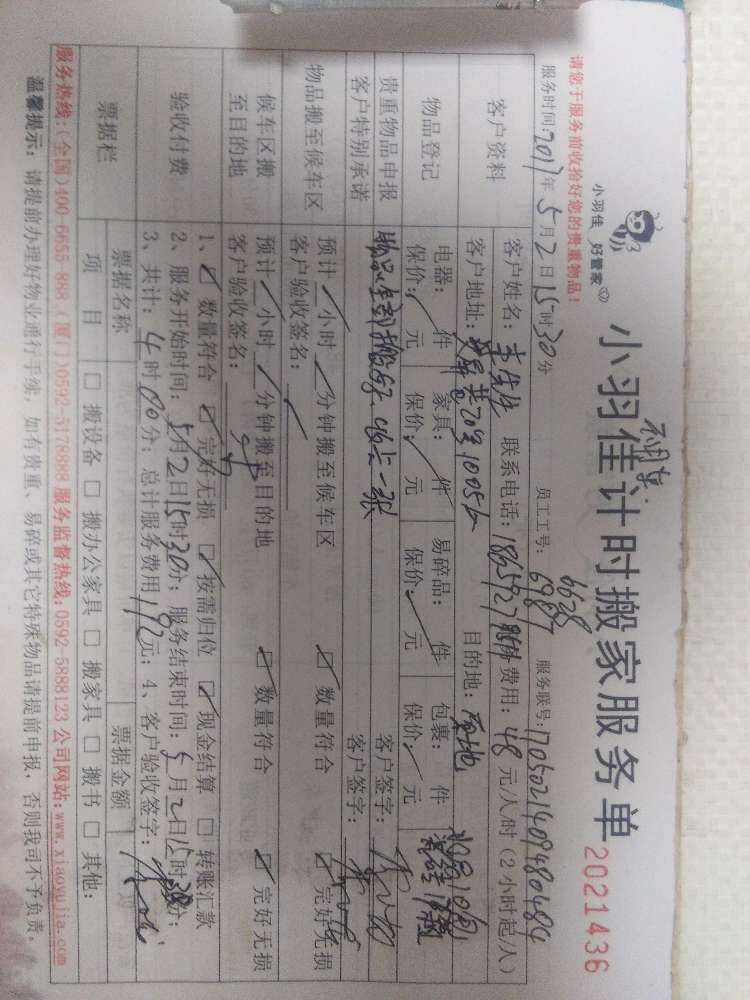 小羽佳 好管家
小羽佳计时搬家服务单 2021436
请您于服务前收拾好您的贵重物品！
服务时间：2017年5月2日15时30分 员工工号： 6628 6987 服务联号：170502140948048
客户资料 客户姓名：李先生 联系电话： 费用：48元/人/时（2小时起/人）
客户地址： 目的地：原地
物品登记 电器： 件 家具： 件 易碎品： 件 包裹： 件
保价： 元 保价： 元 保价： 元 保价： 元
贵重物品申报 客户签字：
客户特别承诺 客户签字：
物品搬至候车区 预计 小时 分钟搬至候车区 数量符合 完好无损
客户验收签名：
候车区搬至目的地 预计 小时 分钟搬至目的地 数量符合 完好无损
客户验收签名：
验收付费 1、 数量符合 完好无损 按需归位 现金结算 转账汇款
2、服务开始时间：5月2日15时30分；服务结束时间：5月2日 时 分；
3、共计：4时00分；总计服务费用192元；4、客户验收签字：
票据栏 票据名称 票据金额
项 目 搬设备 搬办公家具 搬家具 搬书 其他：
服务热线：（全国）400-6655-888 （厦门）0592-5178888 服务监督热线：0592-5888123 公司网站：www.xiaoyujia.com
温馨提示：请提前办理好物业通行手续，如有贵重、易碎或其它特殊物品请提前申报，否则我司不予负责。